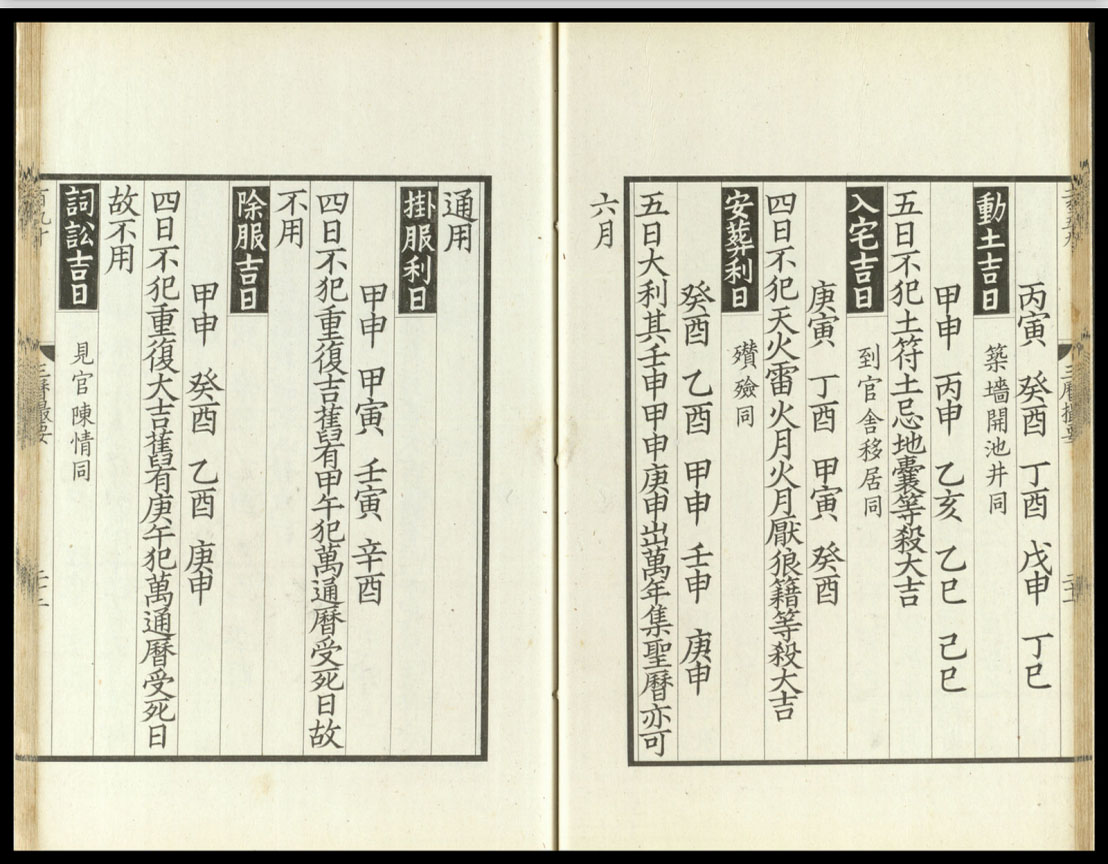 丙寅 癸酉 丁酉 戊申 丁巳
動土吉日 築墻開池井同
甲申 丙申 乙亥 乙巳 己巳
五日不犯土符土忌地囊等殺大吉
入宅吉日 到官舍移居同
庚寅 丁酉 甲寅 癸酉
四日不犯天火雷火月火月厭狼籍等殺大吉
安葬利日 殯殮同
癸酉 乙酉 甲申 壬申 庚申
五日大利其壬申甲申庚申出萬年集聖曆亦可
六月
通用
掛服利日
甲申 甲寅 壬寅 辛酉
四日不犯重復吉舊有甲午犯萬通曆受死日故
不用
除服吉日
甲申 癸酉 乙酉 庚申
四日不犯重復大吉舊有庚午犯萬通曆受死日
故不用
詞訟吉日 見官陳情同